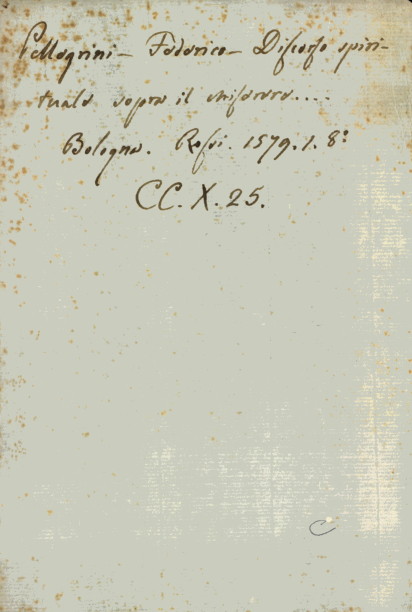 Pellegrini - Federico - Discorso spiri-
tuale sopra il miserere....
Bologna. Rossi. 1579. 1. 8°
CC. X. 25.
C